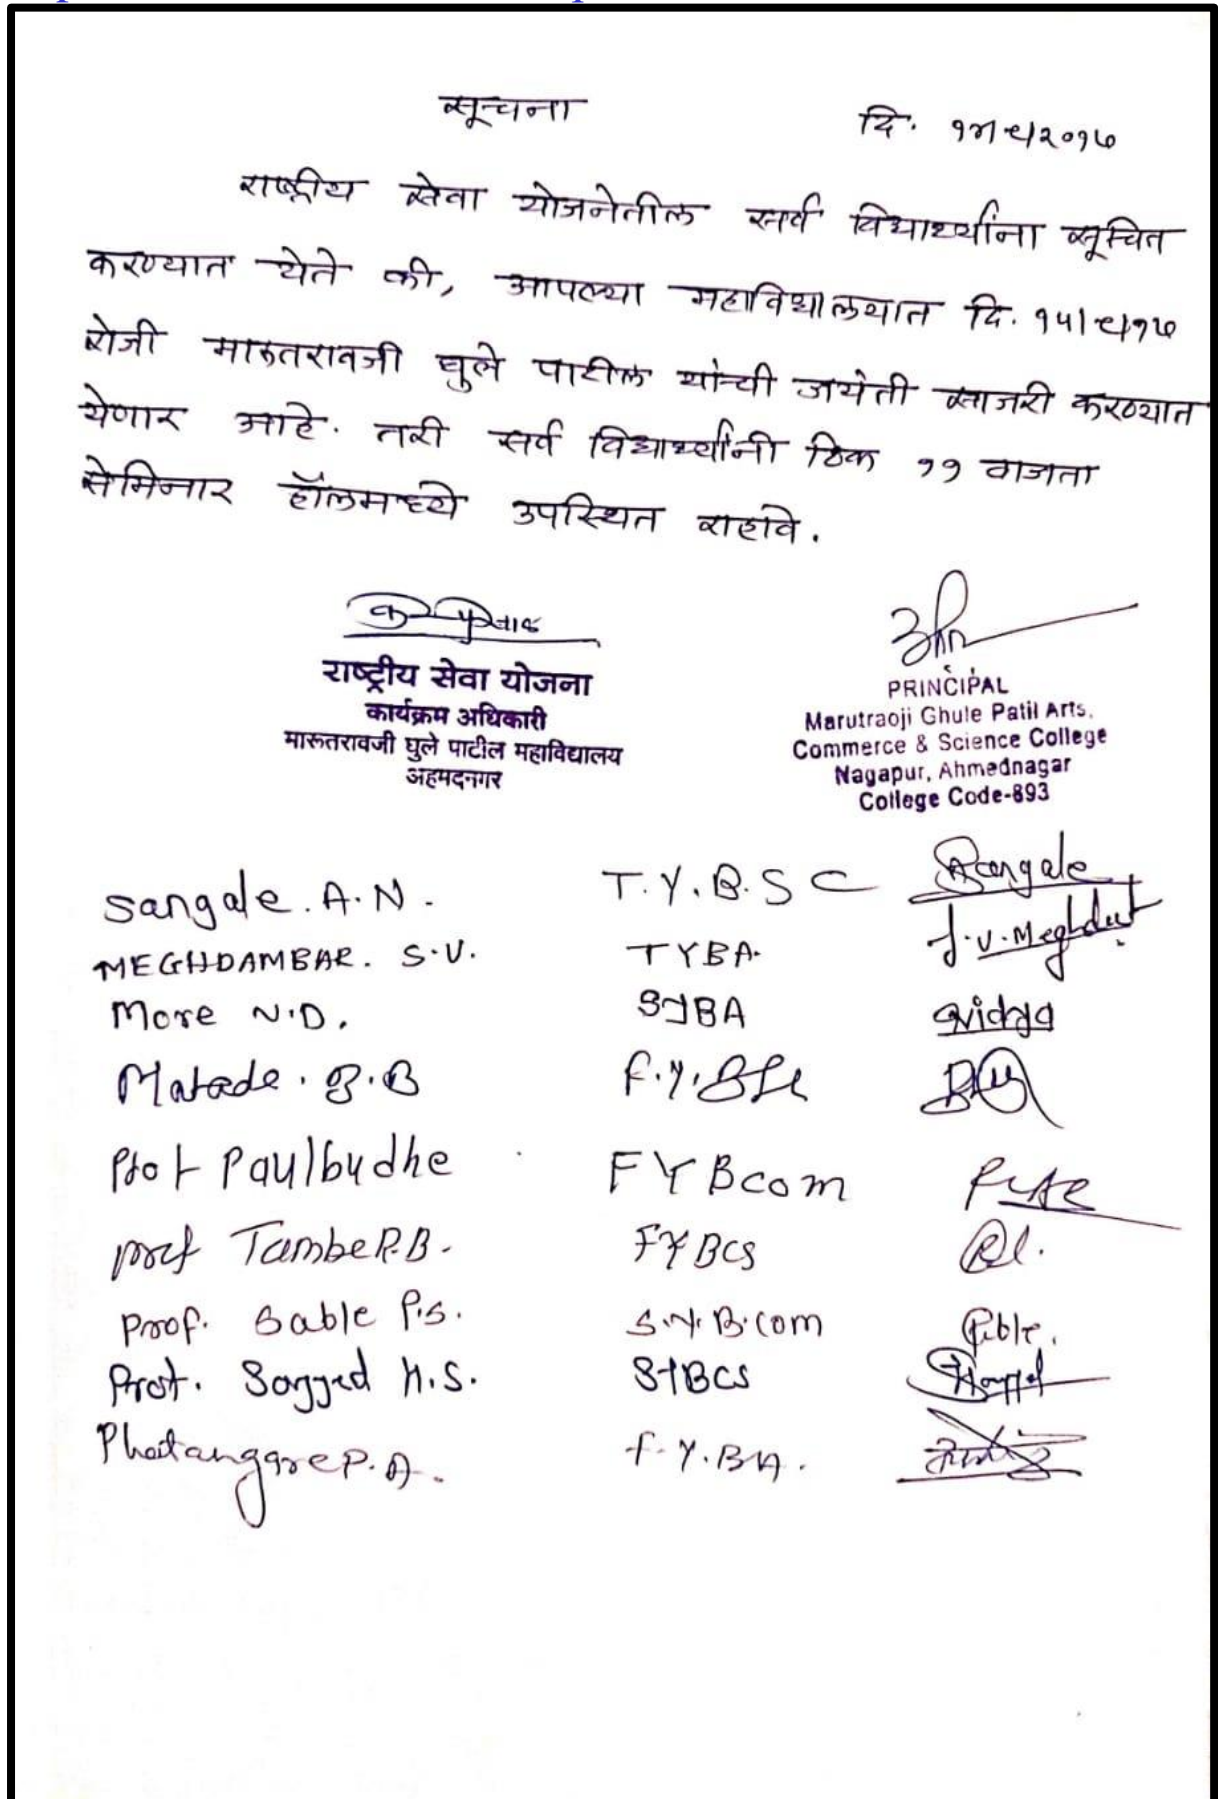 सूचना
दि. १४/९/२०१७
राष्ट्रीय सेवा योजनेतील सर्व विद्यार्थ्यांना सूचित
करण्यात येते की, आपल्या महाविद्यालयात दि. १५/९/१७
रोजी मारुतरावजी घुले पाटील यांची जयंती साजरी करण्यात
येणार आहे. तरी सर्व विद्यार्थ्यांनी ठिक ११ वाजता
सेमिनार हॉलमध्ये उपस्थित राहावे.
राष्ट्रीय सेवा योजना
कार्यक्रम अधिकारी
मारूतरावजी घुले पाटील महाविद्यालय
अहमदनगर
PRINCIPAL
Marutraoji Ghule Patil Arts,
Commerce & Science College
Nagapur, Ahmednagar
College Code-893
Sangale. A.N. T.Y.B.SC Asangale
MEGHDAMBAR. S.V. TYBA.
More N.D. SYBA Nidya
Matade. B.B F.Y.BSc
Prof Paulbudhe FYBcom
Prof Tambe R.B. FYBCS
Prof. Sable P.S. S.Y.B.com
Prof. Sayyad H.S. SYBCS
P.A. F.Y.BA.